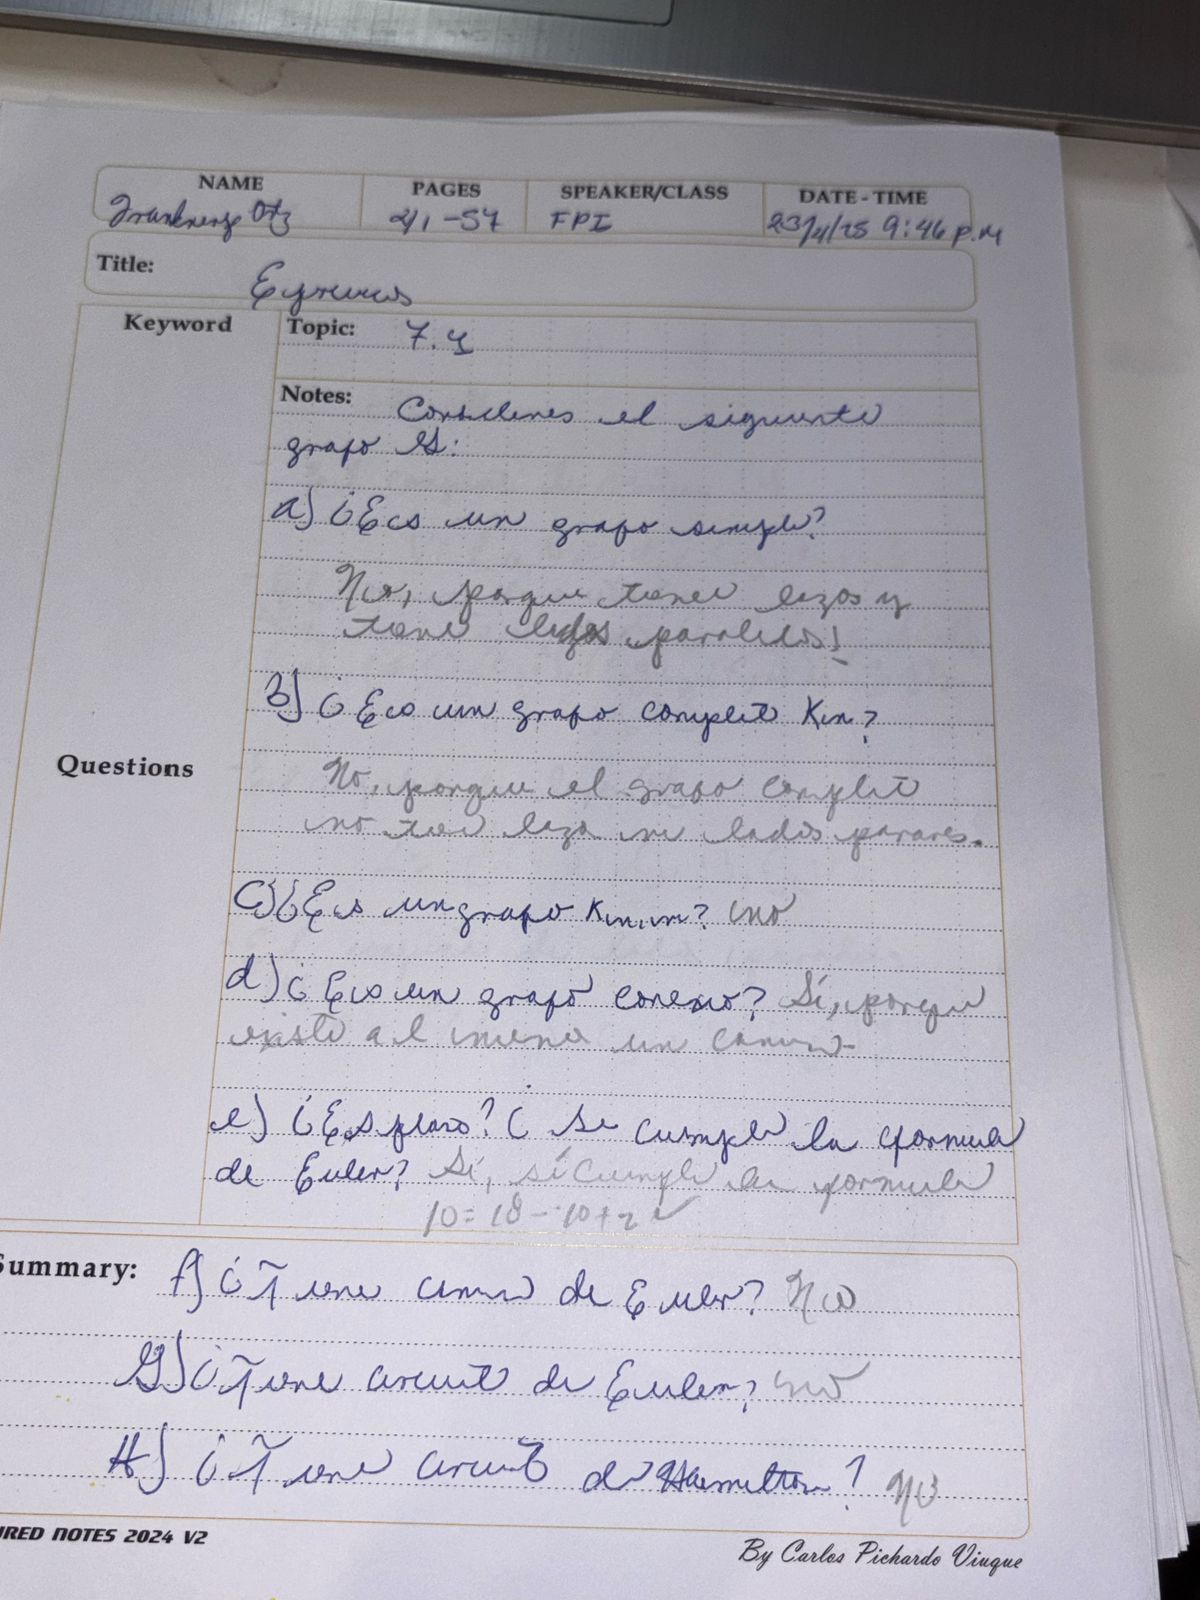 NAME PAGES SPEAKER/CLASS DATE - TIME
2/1-57 FPI 23/4/25 9:46 P.M
Title:
Keyword Topic: 7.4
Notes: el siguiente
grafo G:
a) ¿Es un grafo simple?
No, porque tiene lazos y
tiene lados paralelos!
b) ¿Es un grafo completo Kn?
Questions
No, porque el grafo complet
no lazo ni lados
c) ¿Es un grafo Km,n? no
d) ¿Es un grafo conexo? Sí, porque
existe al menos un camino
e) ¿Es plano? ¿ Se cumple la formula
de Euler? Sí, sí cumple la formula
10 = 18 - 10 + 2 ✓
Summary: f) ¿Tiene camino de Euler? No
G) ¿Tiene circuito de Euler? no
H) ¿Tiene circuito de Hamilton? No
URED NOTES 2024 V2
By Carlos Pichardo Viuque